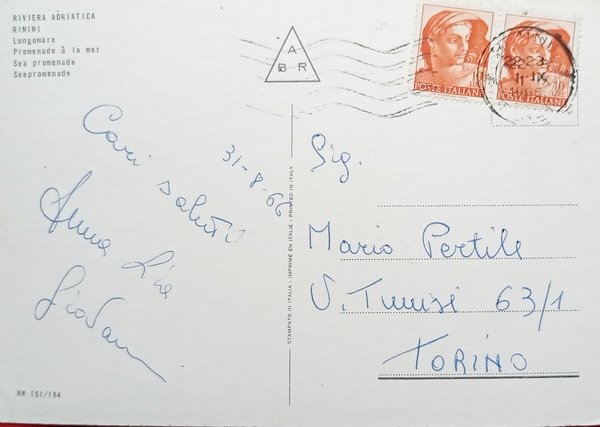 RIVIERA ADRIATICA
RIMINI
Lungomare
Promenade à la mer
Sea promenade
Seepromenade
A
B R
10
POSTE ITALIANE
10
POSTE ITALIANE
22-23
11-IX
31-8-66
Cari saluti
Anna Lisa
STAMPATO IN ITALIA - IMPRIME EN ITALIE - PRINTED IN ITALY
Sig.
Mario Pertile
V. Tunisi 63/1
TORINO
RM 151/194